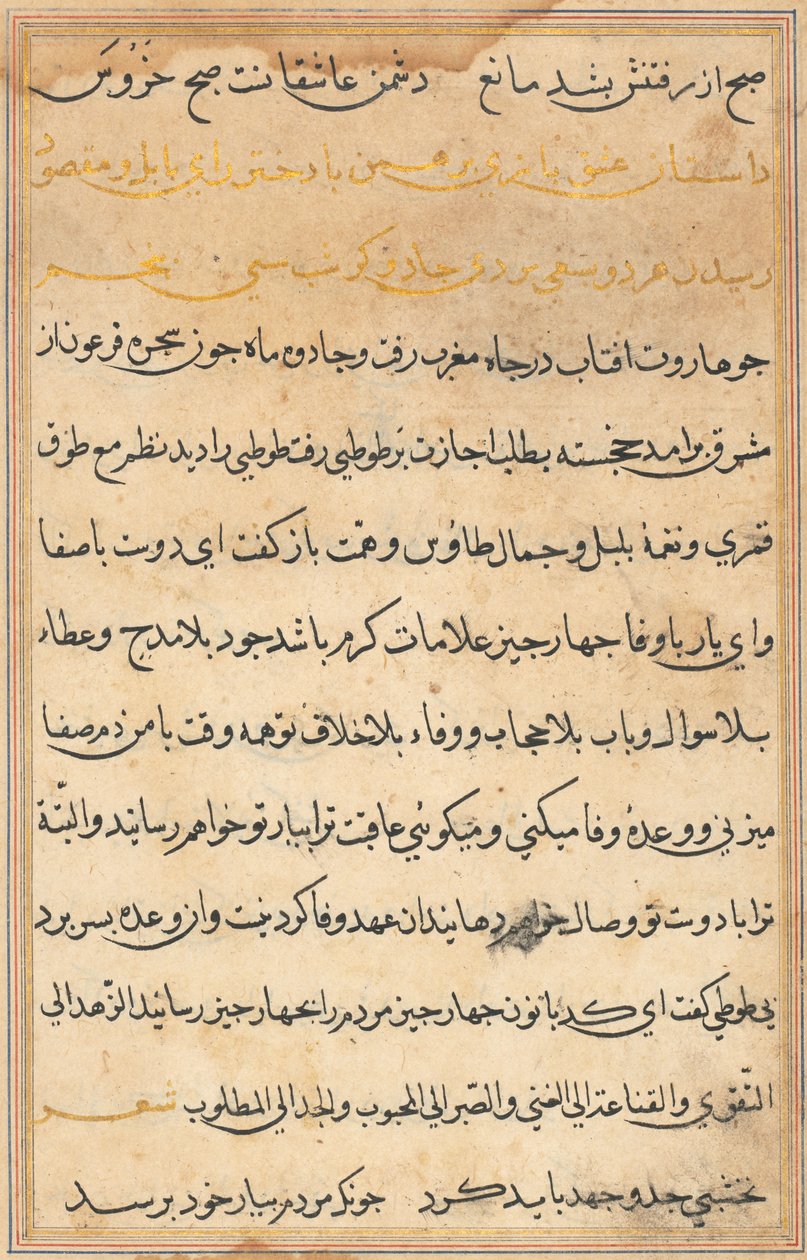 صبح از رفتنش بشد مانع دشمن عاشقانست صبح خروس
داستان عشق بازی برهمن با دختر رای بابل و مقصود
رسیدن هر دو بسعی مردی جادوکر شب سی پنجم
جو هاروت افتاب در جاه مغرب رفت و جادوه ماه جون سحره فرعون از
مشرق برامد خجسته بطلب اجازت بر طوطی رفت طوطی را دید نظم مع طوق
قمری و نغمهٔ بلبل و جمال طاؤس و همّت باز کفت ای دوست باصفا
و ای یار باوفا جهار جیز علامات کرم باشد جود بلا مدح و عطاء
بلا سوال و باب بلا حجاب و وفاء بلا خلاف تو همه وقت با من دم صفا
میزنی و وعدهٔ وفا میکنی و میکوئی عاقبت ترا بیار تو خواهم رسانید و البتّة
ترا با دوست تو وصال خواهم دهانید ان عهد وفا کرد نیست و ان وعده بسر برد
نی طوطی کفت ای کدبانون جهار جیز مردم را بجهار جیز رسانید الزّهد الی
التّقوی و القناعة الی الغنی و الصّبر الی المحبوب و الجد الی المطلوب شعر
نخشبی جد و جهد باید کرد جونک مردم بیار خود برسد